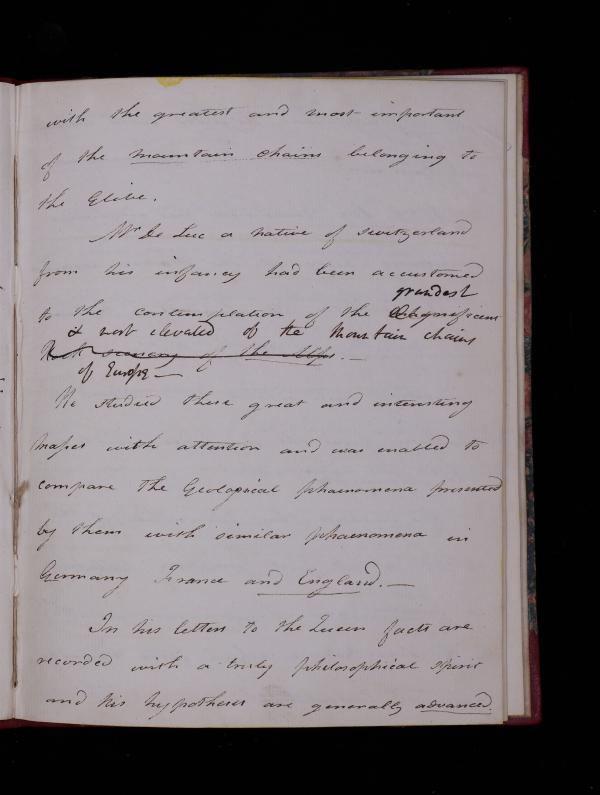 with the greatest and most important
of the mountain chains belonging to
the Globe.
Mr De Luc a native of Switzerland
from his infancy had been accustomed
grandest
to the contemplation of the magnificent
& most elevated of the Mountain chains
scenery of the Alps. —
of Europe —
He studied these great and interesting
masses with attention and was enabled to
compare the Geological phaenomena presented
by them with similar phaenomena in
Germany France and England. —
In his letters to the Queen facts are
recorded with a truly philosophical spirit
and his hypotheses are generally advanced.